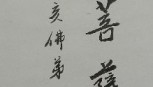 菩薩
亥佛弟